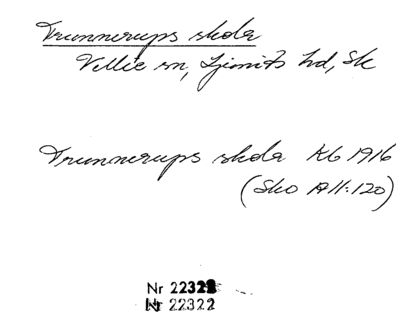 Trunnerups skola
Villie sn, Ljunits hd, Sk
Trunnerups skola KB 1916
(Sko A II:120)
Nr 22322
Nr 22322